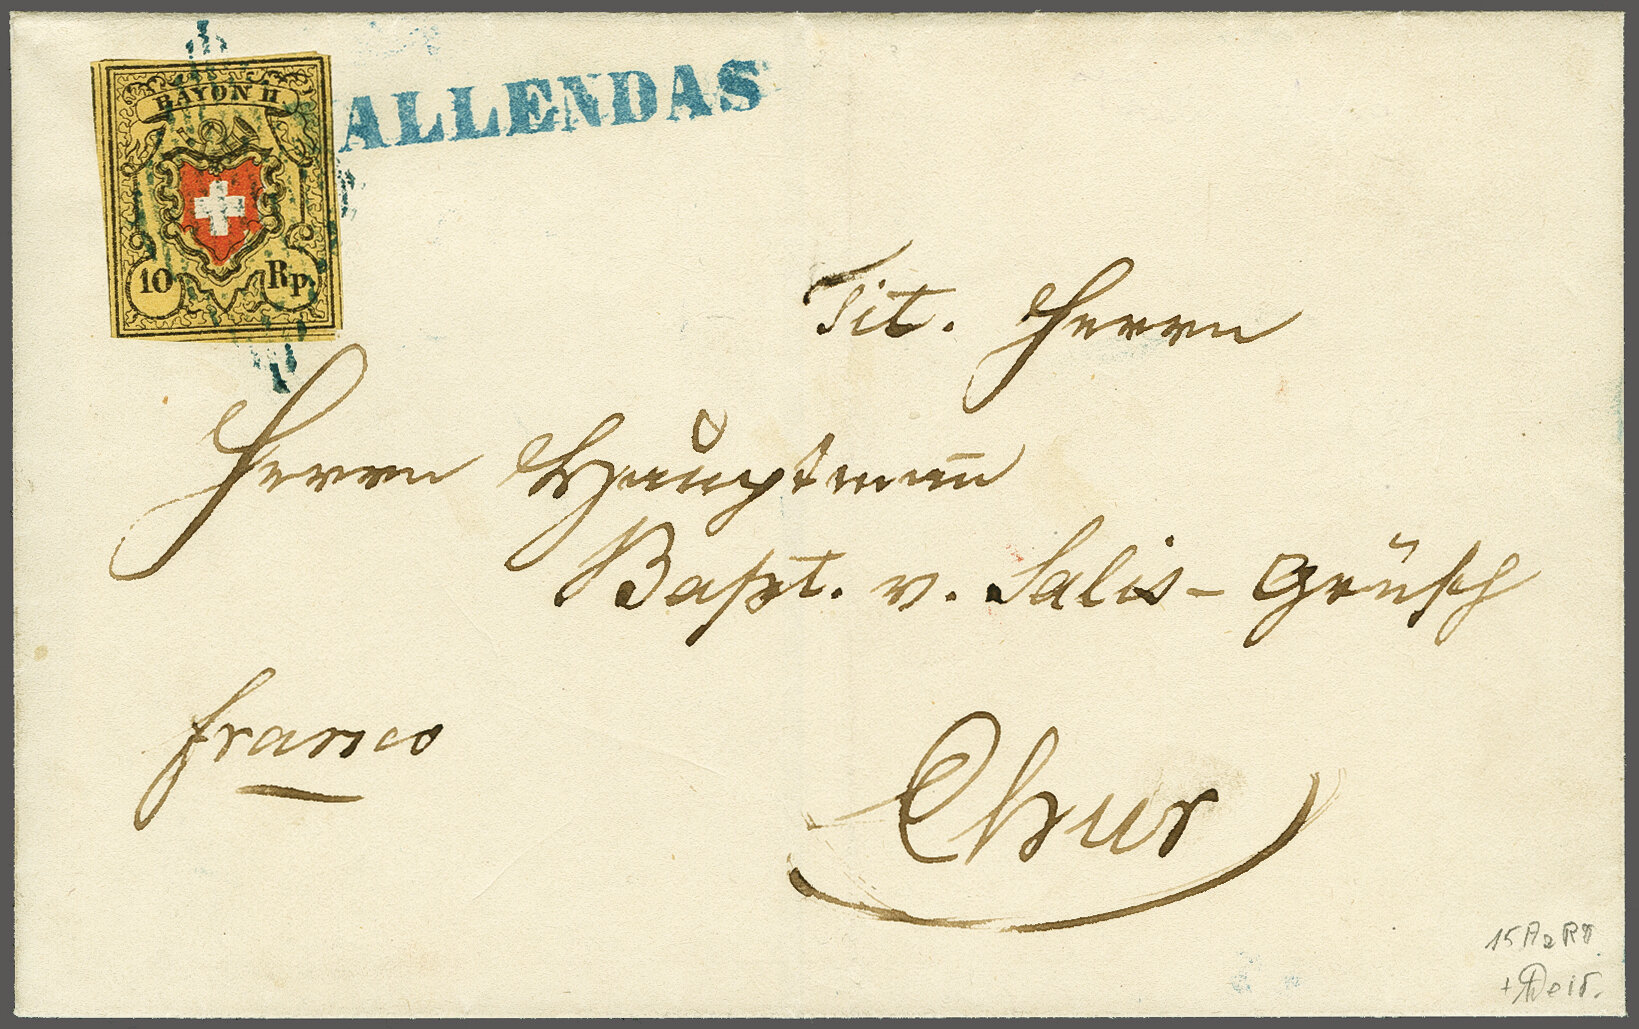 RAYON II
10 Rp.
ALLENDAS
Tit. Herrn
Herrn Hauptmann
Bapt. v. Salis-Grüsch
franco
Chur